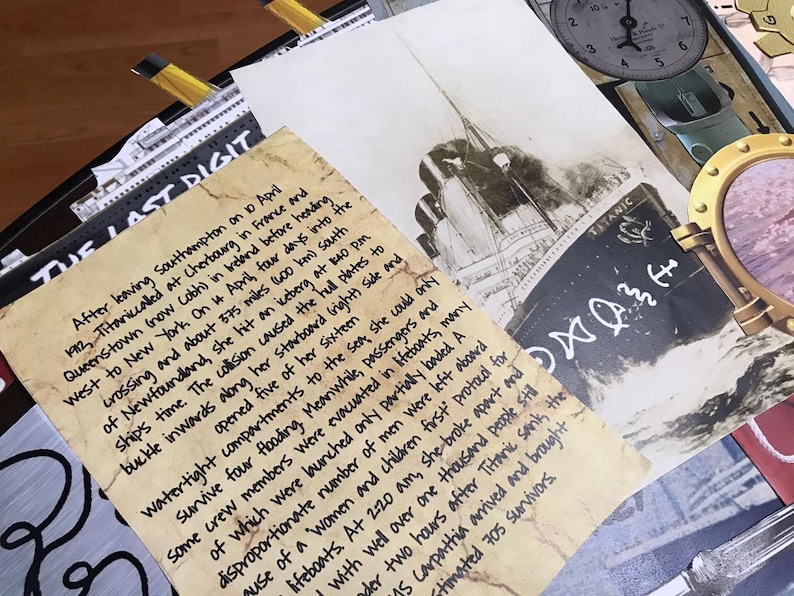 THE LAST DIGIT
After leaving Southampton on 10 April
1912, Titanic called at Cherbourg in France and
Queenstown (now Cobh) in Ireland before heading
west to New York. On 14 April, four days into the
crossing and about 375 miles (600 km) south
of Newfoundland, she hit an iceberg at 11:40 p.m.
ship's time. The collision caused the hull plates to
buckle inwards along her starboard (right) side and
opened five of her sixteen
watertight compartments to the sea; she could only
survive four flooding. Meanwhile, passengers and
some crew members were evacuated in lifeboats, many
of which were launched only partially loaded. A
disproportionate number of men were left aboard
ause of a "women and children first" protocol for
lifeboats. At 2:20 am, she broke apart and
d with well over one thousand people still
nder two hours after Titanic sank, the
MS Carpathia arrived and brought
stimated 705 survivors.
TITANIC
2
3
4
5
6
7
8